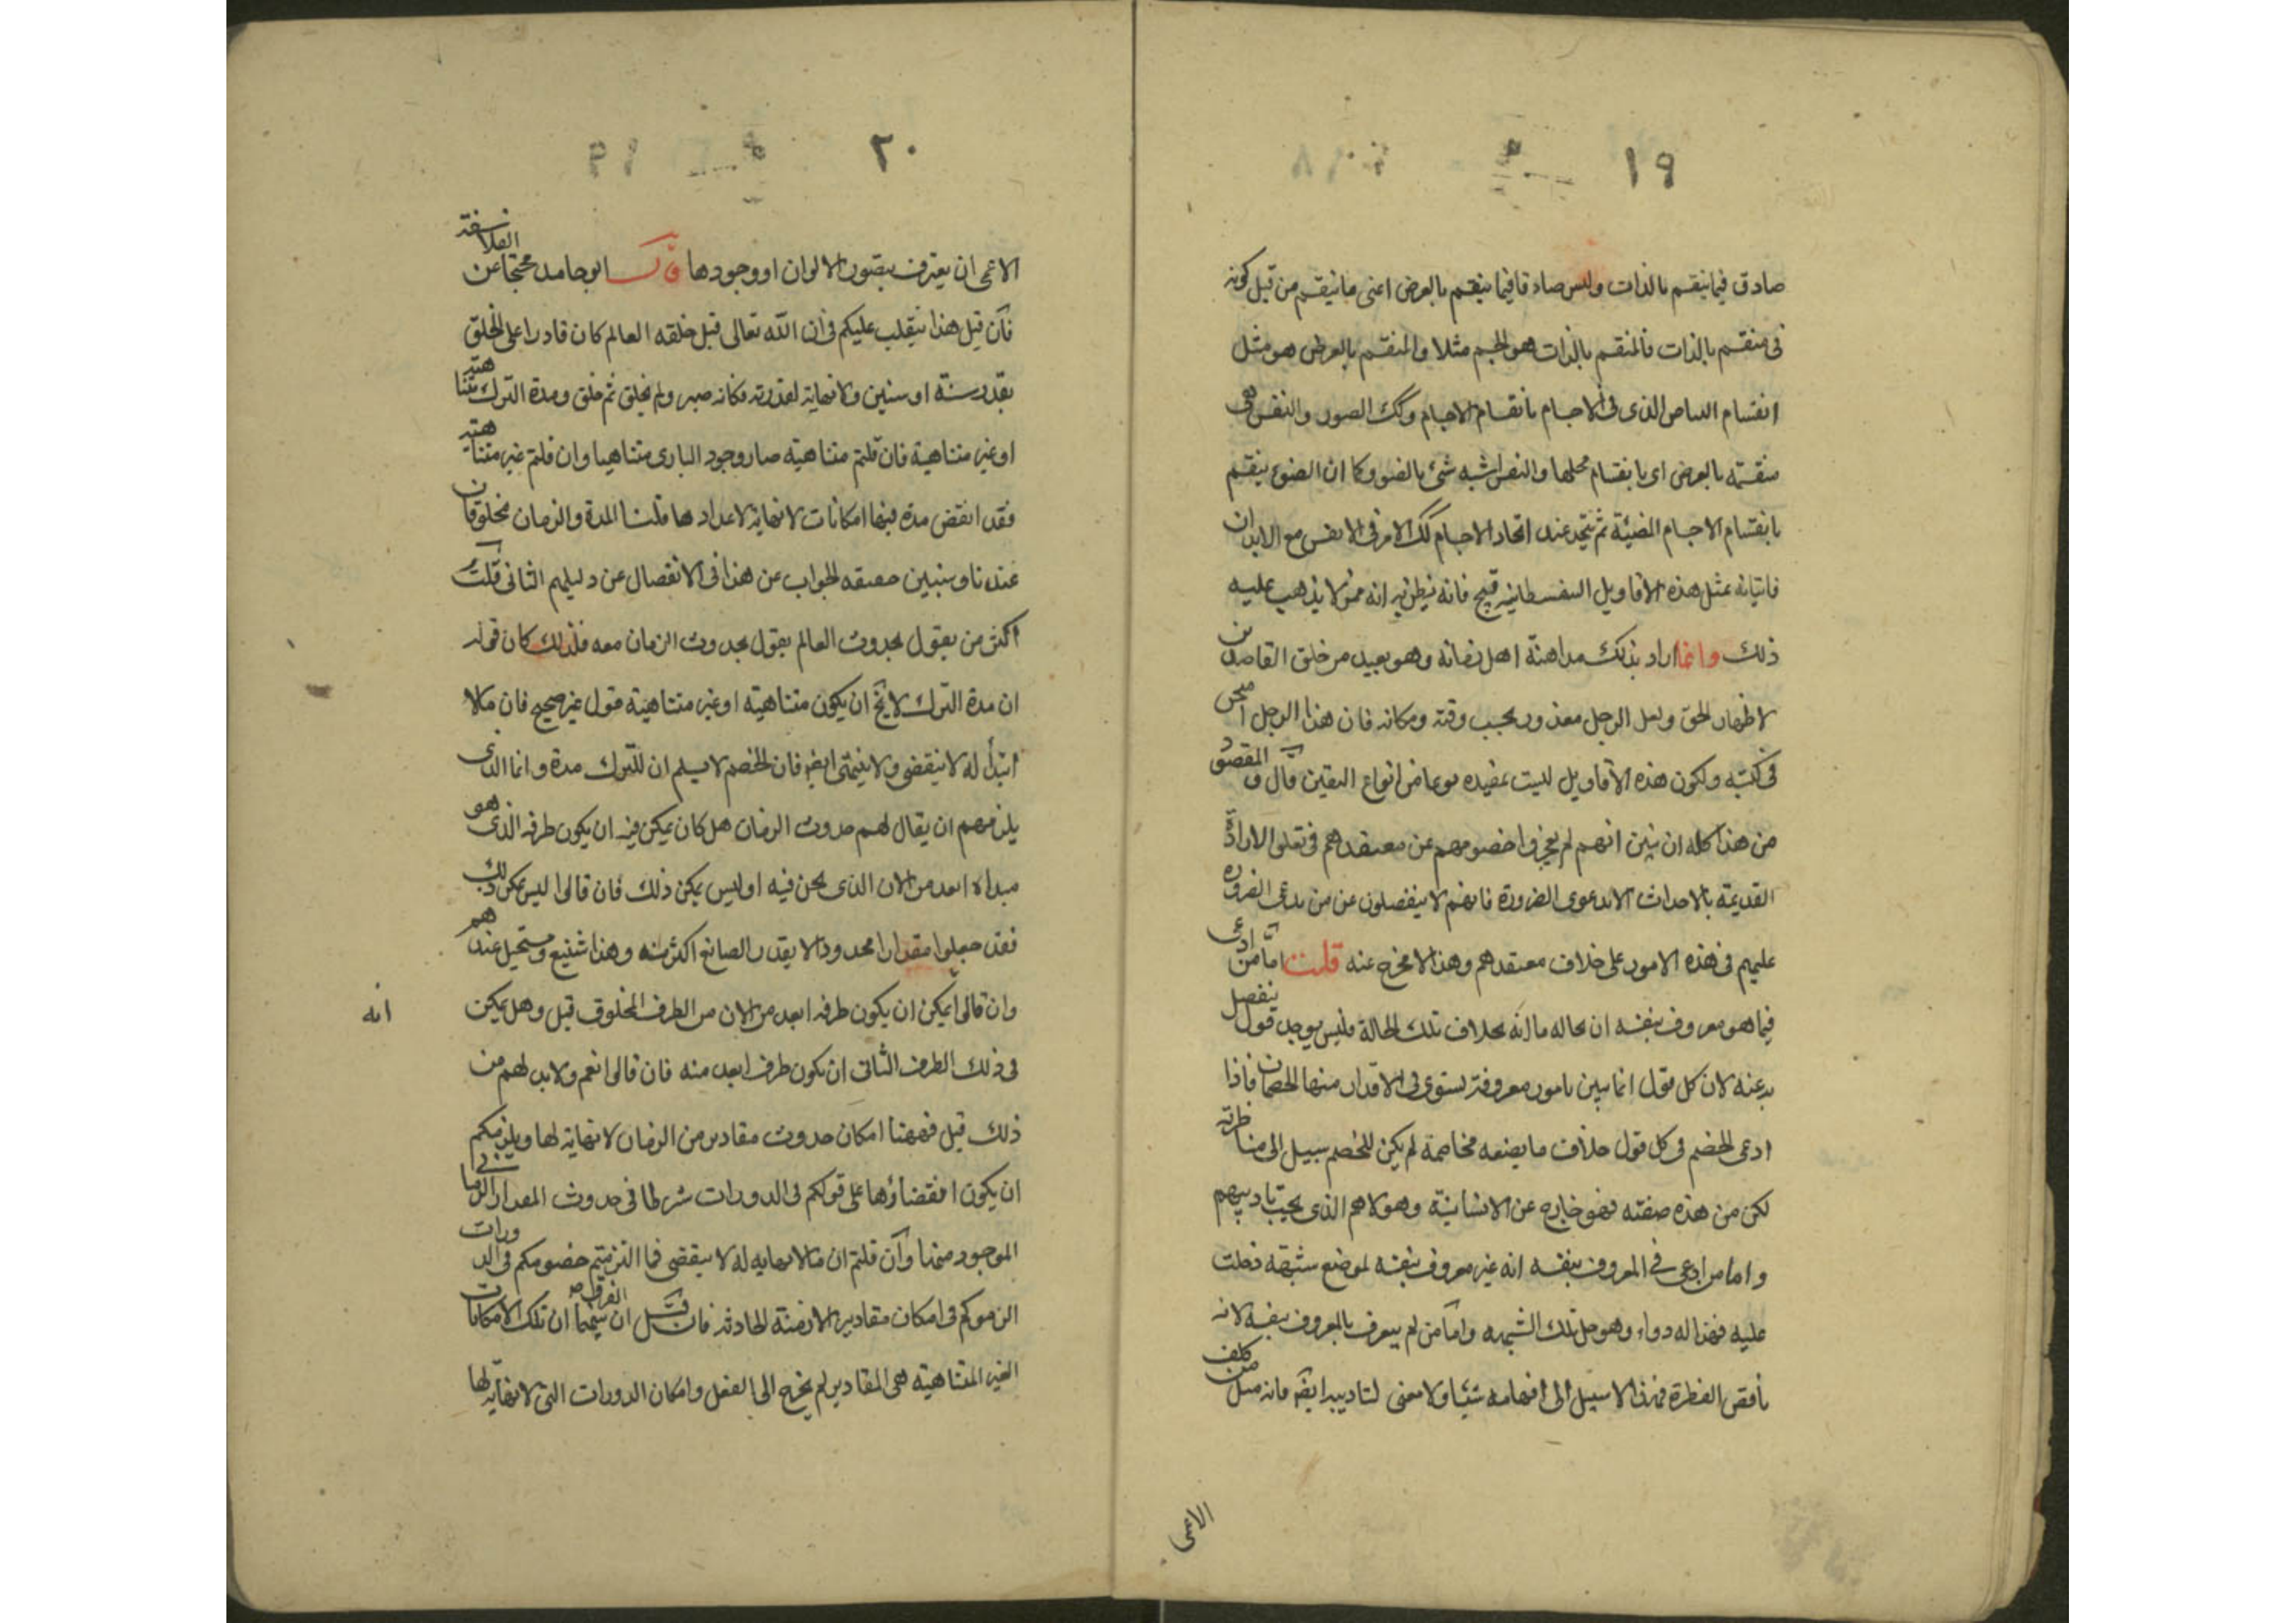 ١٩
صادق فيما ينقسم بالذات وليس صادقا فيما ينقسم بالعرض اعنى ما ينقسم من قبل كونه
فى منقسم بالذات فالمنقسم بالذات هو الجسم مثلا والمنقسم بالعرض هو مثل
انقسام البياض الذى فى الاجسام بانقسام الاجسام وكك الصور والنفس هى
منقسمة بالعرض اى بانقسام محلها والنفس اشبه شئ بالضوء وكما ان الضوء ينقسم
بانقسام الاجسام المضيئة ثم يتحد عند اتحاد الاجسام كك الامر فى الانفس مع الابدان
فاتيانه بمثل هذه الاقاويل السفسطانية قبيح فانه يظن به انه ممن لا يذهب عليه
ذلك وانما اراد بذلك مداهنة اهل زمانه وهو بعيد من خلق القاصدين
لاظهار الحق ولعل الرجل معذور بحسب وقته ومكانه فان هذا الرجل امتحن
فى كتبه ولكون هذه الاقاويل ليست بمفيده نوعا من انواع اليقين قال والمقصود
من هذا كله ان نبين انهم لم يعجزوا خصومهم عن معتقدهم فى تعلق الارادة
القديمة بالاحداث الا بدعوى الضرورة فانهم لا ينفصلون عن من يدعى الضرورة
عليهم فى هذه الامور على خلاف معتقدهم وهذا لا مخرج عنه قلت اما من ادعى
فيما هو معروف بنفسه ان بحاله ما انه بخلاف تلك الحالة فليس يوجد قول ينفصل
به عنه لان كل قول انما يبين بامور معروفة يستوى فى الاقدار منها الخصمان فاذا
ادعى الخصم فى كل قول خلاف ما يضعه مخاصمة لم يكن للخصم سبيل الى مناظرته
لكن من هذه صفته فهو خارج عن الانسانية وهولا هم الذى يجب تاديبهم
واما من ادعى فى المعروف بنفسه انه غير معروف بنفسه لموضع شبهة دخلت
عليه فهذا له دواء وهو حل تلك الشبهه واما من لم يعرف بالمعروف بنفسه لانه
ناقص الفطرة فهذا لا سبيل الى افهامه شيئا ولا معنى لتاديبه ايضا فانه مثل من كلف
الاعمى
٢٠
الاعمى ان يعترف بتصور الالوان او وجودها قال ابو حامد محتجا عن الفلاسفة
فان قيل هذا ينقلب عليكم فى ان الله تعالى قبل خلقه العالم كان قادرا على الخلق
بقدر سنة او سنين ولا نهاية لقدرته فكانه صبر ولم يخلق ثم خلق ومدة الترك متناهية
او غير متناهية فان قلتم متناهية صار وجود البارى متناهيا وان قلتم غير متناهية
فقد انقضى مدة فيها امكانات لا نهاية لاعدادها قلنا المدة والزمان مخلوقان
عندنا وسنبين حقيقه الجواب عن هذا فى الانفصال عن دليلهم الثانى قلت
اكثر من يقول بحدوث العالم يقول بحدوث الزمان معه فلذلك كان قوله
ان مدة الترك لا يخ ان يكون متناهية او غير متناهية قول غير صحيح فان ما لا
ابتدأ له لا ينقضى ولا ينتهى ايضا فان الخصم لا يسلم ان للترك مدة وانما الذى
يلزمهم ان يقال لهم حدوث الزمان هل كان يمكن فيه ان يكون طرفه الذى هو
مبداه ابعد من الان الذى نحن فيه او ليس يمكن ذلك فان قالوا ليس يمكن ذلك
فقد جعلوا مقدارا محدودا لا يقدر الصانع اكثر منه وهذا شنيع ومستحيل عندهم
وان قالوا يمكن ان يكون طرفه ابعد من الان من الطرف المخلوق قيل وهل يمكن
انه
فى ذلك الطرف الثانى ان يكون طرف ابعد منه فان قالوا نعم ولا بد لهم من
ذلك قيل فههنا امكان حدوث مقادير من الزمان لا نهاية لها ويلزمكم
ان يكون انقضاؤها على قولكم فى الدورات شرطا فى حدوث المقدار الزمانى
الموجود منها وان قلتم ان ما لا نهايه له لا ينقضى فما الزمتم خصومكم فى الدورات
الزموكم فى امكان مقادير الازمنة الحادثه فان قيل ان الفرق بينهما ان تلك الامكانات
الغير المتناهية هى المقادير لم يخرج الى الفعل وامكان الدورات التى لا نهاية لها